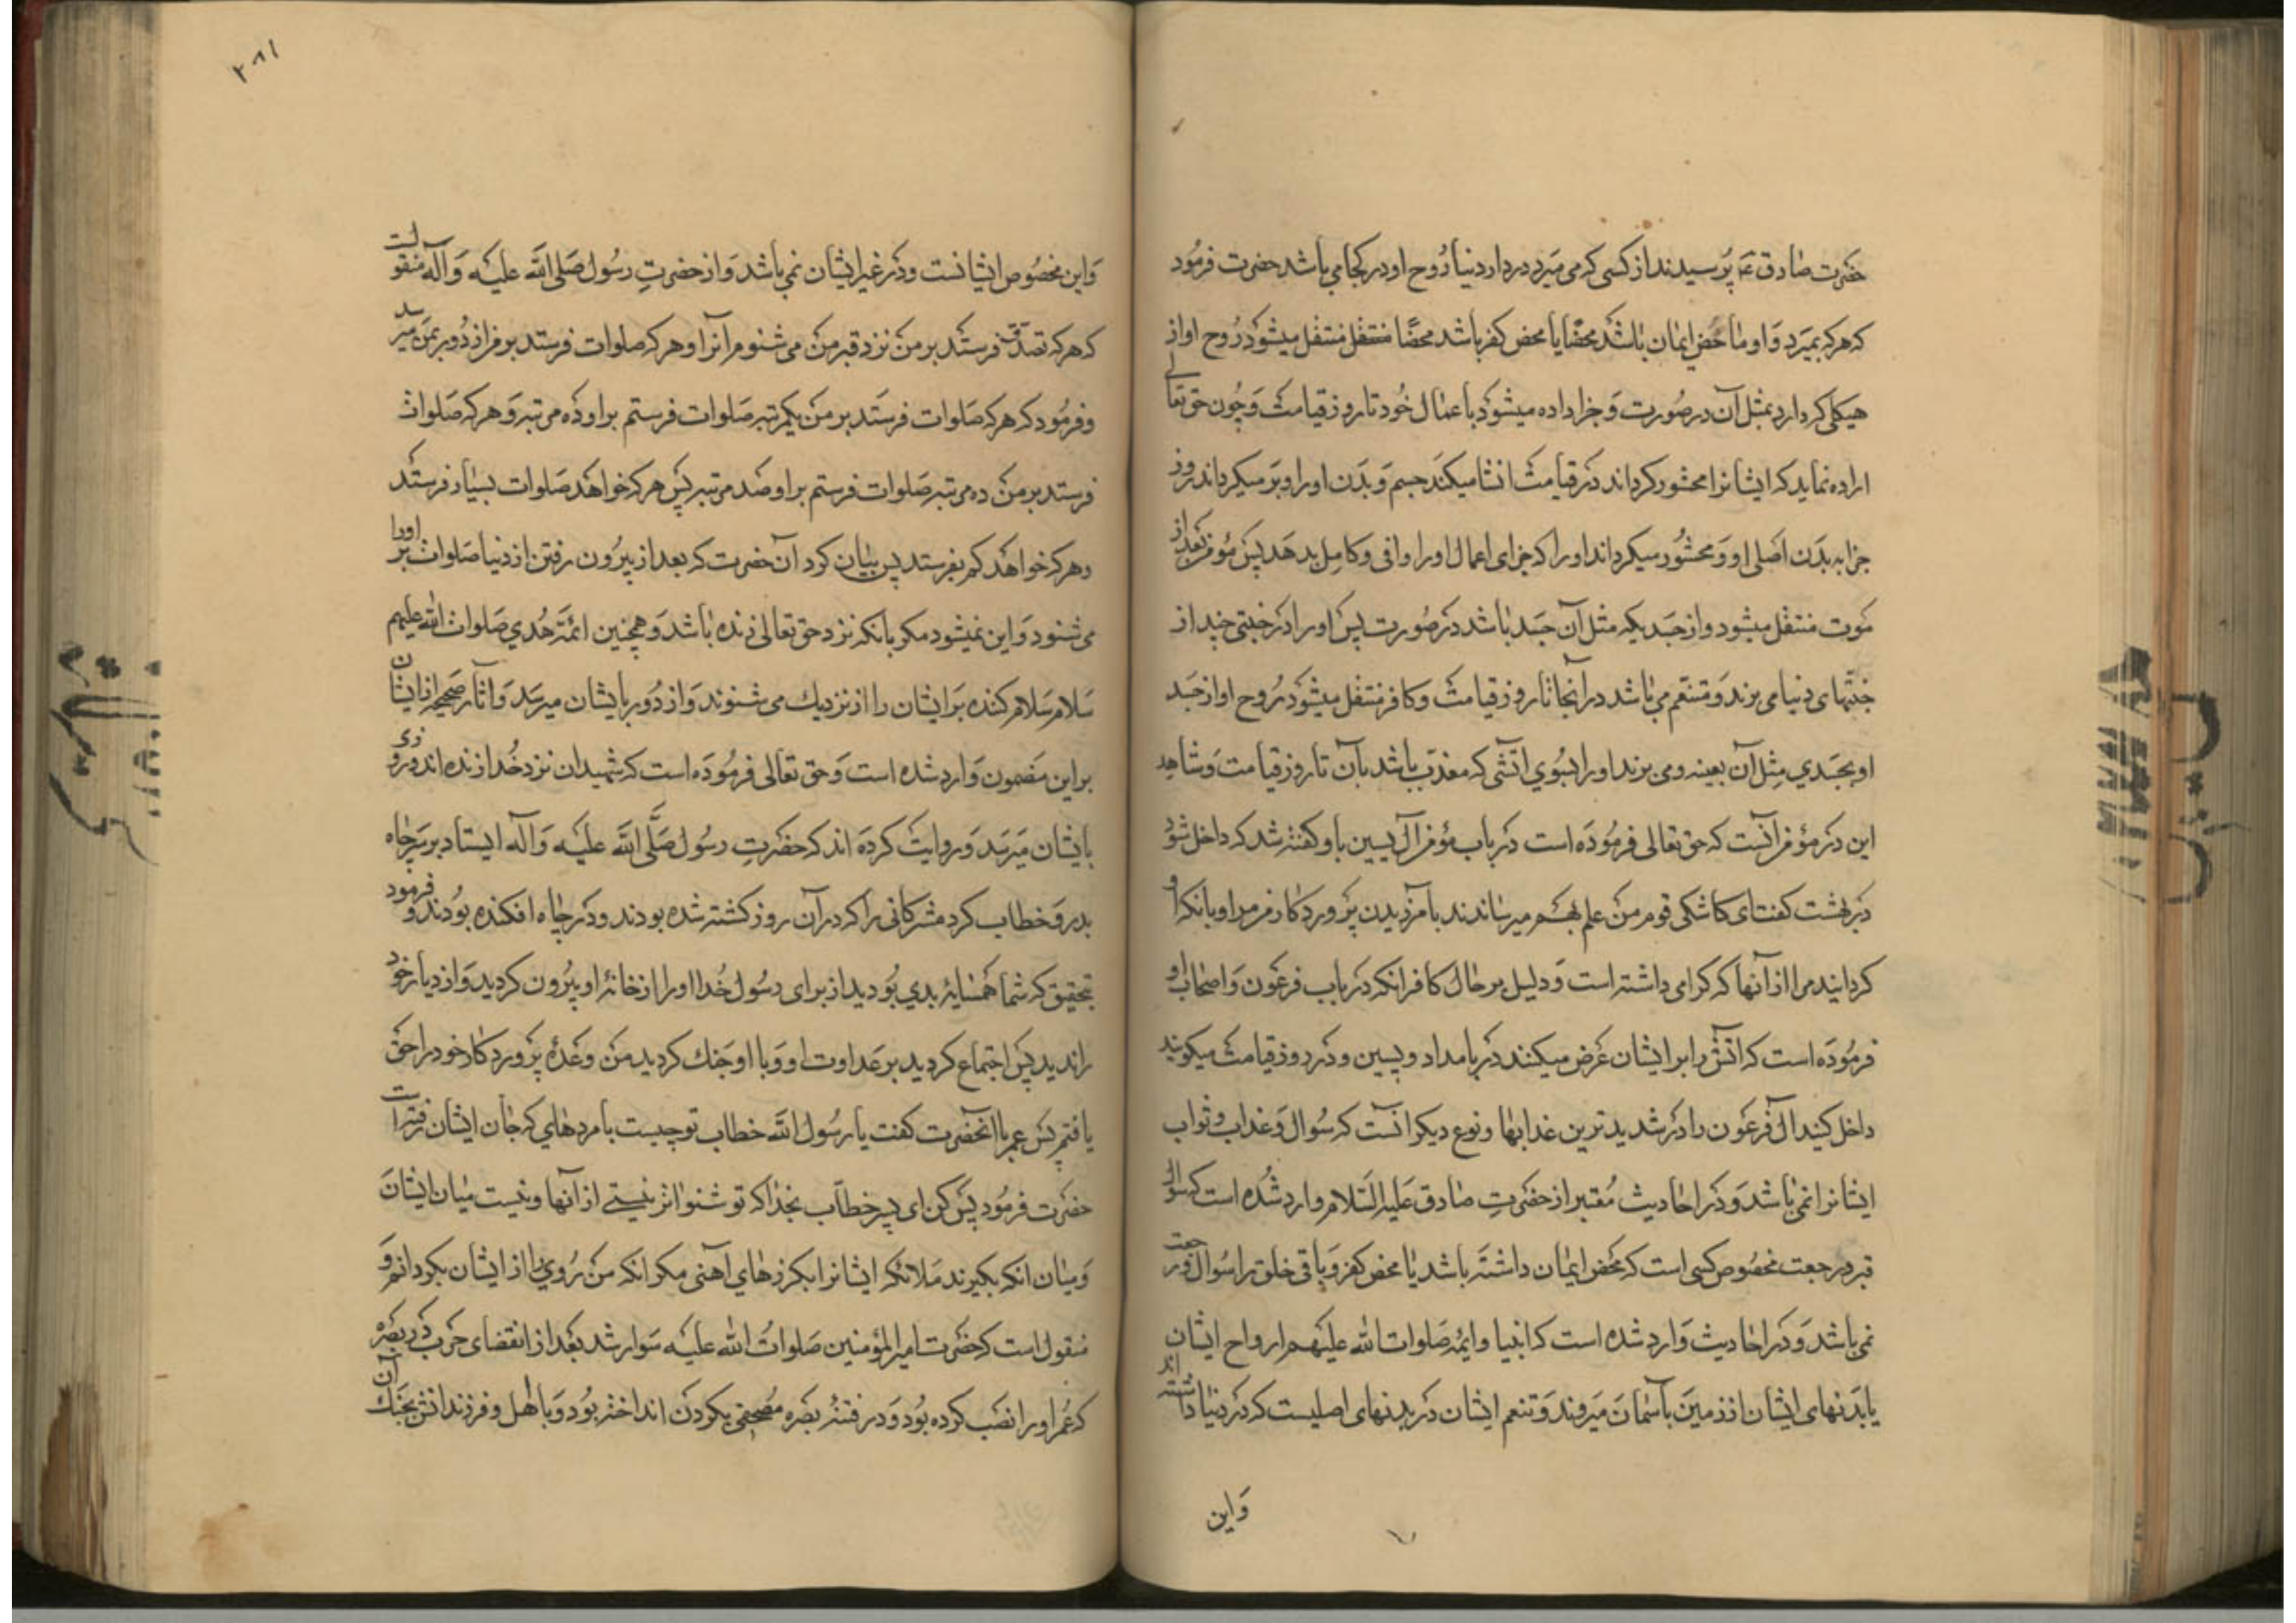 حضرت صادق ع پرسیدند از کسی که می میرد در دار دنیا روح او در کجا می باشد حضرت فرمود
که هرکه بمیرد و او ماحض ایمان باشد محضا یا محض کفر باشد محضا منتقل منتقل میشود روح او از
هیکلی که دارد بمثل آن در صورت و جزا داده میشود باعمال خود تا روز قیامت و چون حق تعالی
اراده نماید که ایشانرا محشور گرداند در قیامت انشا میکند جسم و بدن او را و بر میگرداند روز
جزا به بدن اصلی او و محشور میگرداند او را که جزای اعمال او را وافی و کامل بدهد پس مؤمن بعد از
موت منتقل میشود و از جسدیکه مثل آن جسد باشد در صورت پس او را در جنتی چند از
جنتهای دنیا می برند و متنعم می باشد در آنجا تا روز قیامت و کافر منتقل میشود روح او از جسد
او بجسدی مثل آن بعینه و می برند او را بسوی آتشی که معذب باشد بآن تا روز قیامت و شاهد
این در مؤمن آنست که حق تعالی فرموده است در باب مؤمن آل یسین باو کفته شد که داخل شو
در بهشت کفت ای کاشکی قوم من علم بهم میرساندند بامرزیدن پروردکار مر مرا و بانکه او
کردانید مرا از آنها که کرامی داشته است و دلیل بر حال کافر انکه در باب فرعون و اصحاب او
فرموده است که آتش را بر ایشان عرض میکنند در بامداد و پسین و در روز قیامت میکویند
داخل کنید آل فرعون را در شدیدترین عذابها و نوع دیکر انست که سوال و عذاب و ثواب
ایشانرا نمی باشد و در احادیث معتبر از حضرت صادق علیه السلام وارد شده است که سوال
قبر در رجعت مخصوص کسی است که محض ایمان داشته باشد یا محض کفر و باقی خلق را سوال و رجعت
نمی باشد و در احادیث وارد شده است که انبیا و ایمه صلوات الله علیهم ارواح ایشان
یا بدنهای ایشان از زمین بآسمان میروند و تنعم ایشان در بدنهای اصلیست که در دنیا داشته اند
و این
۲۸۱
و این مخصوص ایشانست و در غیر ایشان نمی باشد و از حضرت رسول صلی الله علیه و آله منقولست
که هرکه فرستد بر من نزد قبر من می شنوم آنرا و هرکه صلوات فرستد بر من از دور بمن میرسد
و فرمود که هرکه صلوات فرستد بر من یکمرتبه صلوات فرستم بر او ده مرتبه و هرکه صلوات
فرستد بر من ده مرتبه صلوات فرستم بر او صد مرتبه پس هرکه خواهد صلوات بسیار فرستد
و هرکه خواهد کم بفرستد پس بیان کرد آن حضرت که بعد از بیرون رفتن از دنیا صلوات بر او را
می شنود و این نمیشود مکر بانکه نزد حق تعالی زنده باشد و همچنین ائمه هدی صلوات الله علیهم
سلام سلام کننده بر ایشان را از نزدیک می شنوند و از دور بایشان میرسد و آثار صحیحه از ایشان
بر این مضمون وارد شده است و حق تعالی فرموده است که شهیدان نزد خدا زنده اند و روزی
بایشان میرسد و روایت کرده اند که حضرت رسول صلی الله علیه و آله ایستاد بر سر چاه
بدر و خطاب کرد مشرکانی را که در آن روز کشته شده بودند و در چاه افکنده بودند و فرمود
بتحقیق که شما همسایه بدی بودید از برای رسول خدا او را از خانه او بیرون کردید و از دیار خود
راندید پس اجتماع کردید بر عداوت او و با او جنک کردید من وعده پروردکار خود را حق
یافتم پس عمر باآنحضرت کفت یا رسول الله خطاب تو چیست با مردهای که جان ایشان رفته است
حضرت فرمود بس کن ای پسر خطاب بخدا که تو شنواتر نیستی از آنها و نیست میان ایشان
و میان انکه بکیرند ملائکه ایشانرا بکرزهای آهنی مکر انکه من روی را از ایشان بکردانم و
منقول است که حضرت امیرالمؤمنین صلوات الله علیه سوار شد بعد از انقضای حرب در بصره
که عمر او را نصب کرده بود و در فتنه بصره مصحفی بکردن انداخته بود و با اهل و فرزندانش بجنک آن